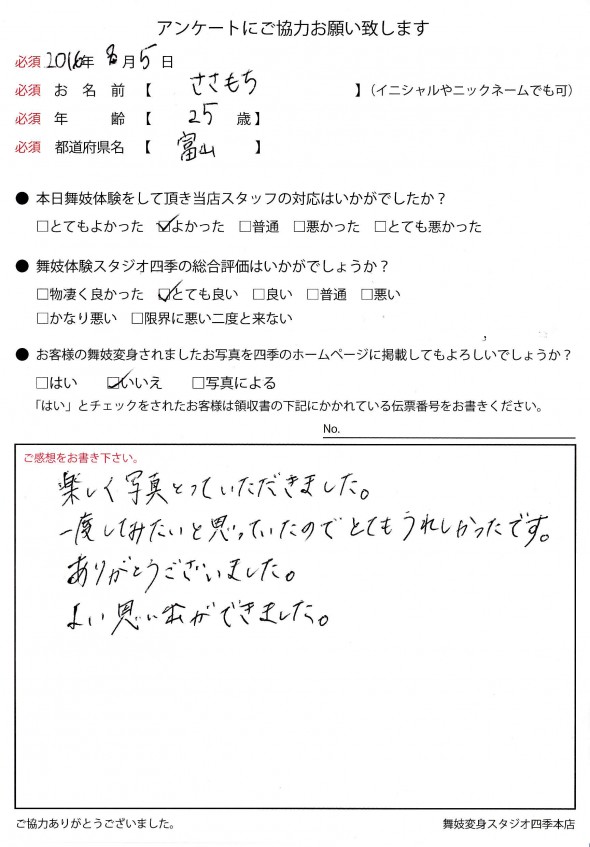 アンケートにご協力お願い致します
必須 2016年 8月5日
必須 お名前【 ささもち 】（イニシャルやニックネームでも可）
必須 年齢【 25 歳】
必須 都道府県名【 富山 】
● 本日舞妓体験をして頂き当店スタッフの対応はいかがでしたか？
□とてもよかった ☑よかった □普通 □悪かった □とても悪かった
● 舞妓体験スタジオ四季の総合評価はいかがでしょうか？
□物凄く良かった ☑とても良い □良い □普通 □悪い
□かなり悪い □限界に悪い二度と来ない
● お客様の舞妓変身されましたお写真を四季のホームページに掲載してもよろしいでしょうか？
□はい ☑いいえ □写真による
「はい」とチェックをされたお客様は領収書の下記にかかれている伝票番号をお書きください。
No.
ご感想をお書き下さい。
楽しく写真とっていただきました。
一度してみたいと思っていたのでとてもうれしかったです。
ありがとうございました。
よい思い出ができました。
ご協力ありがとうございました。 舞妓変身スタジオ四季本店